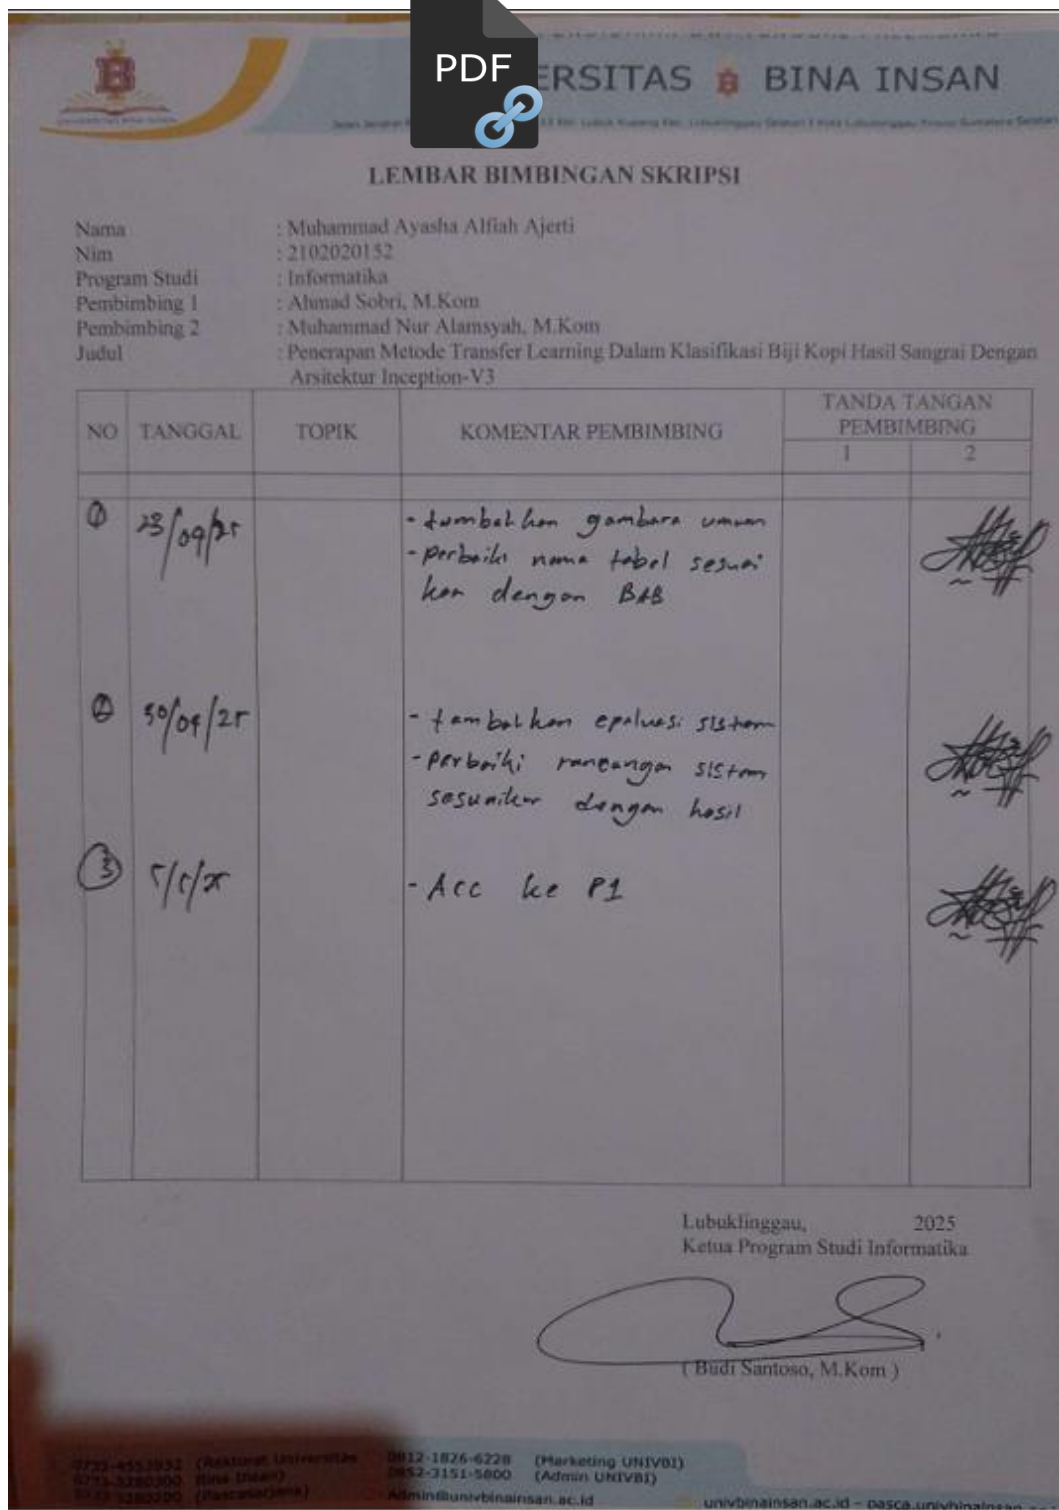 PDF
ERSITAS BINA INSAN
LEMBAR BIMBINGAN SKRIPSI
Nama : Muhammad Ayasha Alfiah Ajerti
Nim : 2102020152
Program Studi : Informatika
Pembimbing 1 : Ahmad Sobri, M.Kom
Pembimbing 2 : Muhammad Nur Alamsyah, M.Kom
Judul : Penerapan Metode Transfer Learning Dalam Klasifikasi Biji Kopi Hasil Sangrai Dengan
Arsitektur Inception-V3
NO TANGGAL TOPIK KOMENTAR PEMBIMBING TANDA TANGAN
PEMBIMBING
1 2
1 23/04/25 - tambahkan gambara umum
- perbaiki nama tabel sesuai
kan dengan BAB
2 30/04/25 - tambahkan epaluasi sistem
- perbaiki rancangan sistem
sesuaikan dengan hasil
3 5/5/25 - Acc ke P1
Lubuklinggau, 2025
Ketua Program Studi Informatika
( Budi Santoso, M.Kom )
(Rektorat Universitas 0812-1826-6228 (Marketing UNIVBI)
Bina Insan) 0852-3151-5800 (Admin UNIVBI)
(Pascasarjana) Admin@univbinainsan.ac.id univbinainsan.ac.id - pasca.univbinainsan